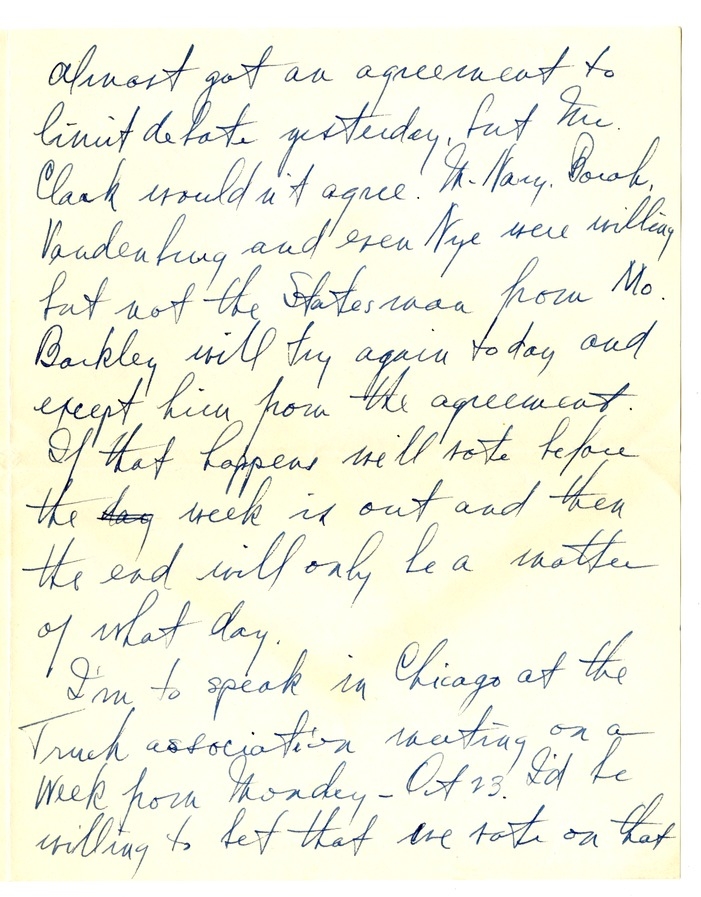 almost got an agreement to
limit debate yesterday, but Mr.
Clark wouldn't agree. McNary, Borah,
Vandenburg and even Nye were willing
but not the Statesman from Mo.
Barkley will try again today and
except him from the agreement.
If that happens we'll vote before
the day week is out and then
the end will only be a matter
of what day.
I'm to speak in Chicago at the
Truck association meeting on a
week from Monday - Oct 23. I'd be
willing to bet that we vote on that